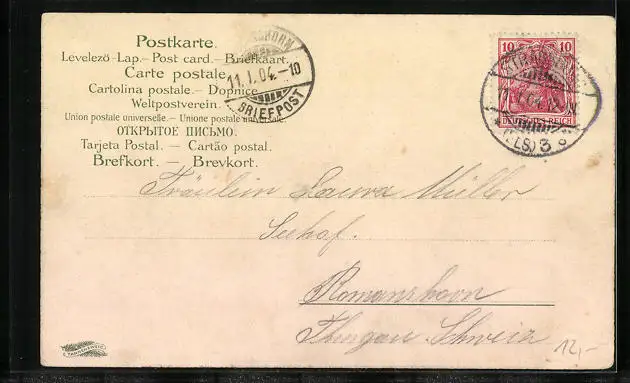 Postkarte.
Levelező-Lap.- Post card.- Briefkaart.
Carte postale
Cartolina postale.- Dopisnice.
Weltpostverein.
Union postale universelle.- Unione postale universale
ОТКРЫТОЕ ПИСЬМО.
Tarjeta Postal. - Cartão postal.
Brefkort. - Brevkort.
11.I.04.-10
BRIEFPOST
10 10
DEUTSCHES REICH
(ELS) 3
Fräulein Laura Müller
Seehof.
Romanshorn
Thurgau. Schweiz
12,-